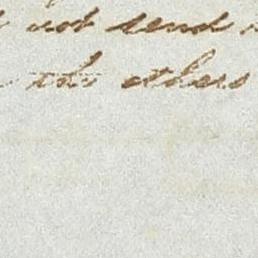 not send
the others